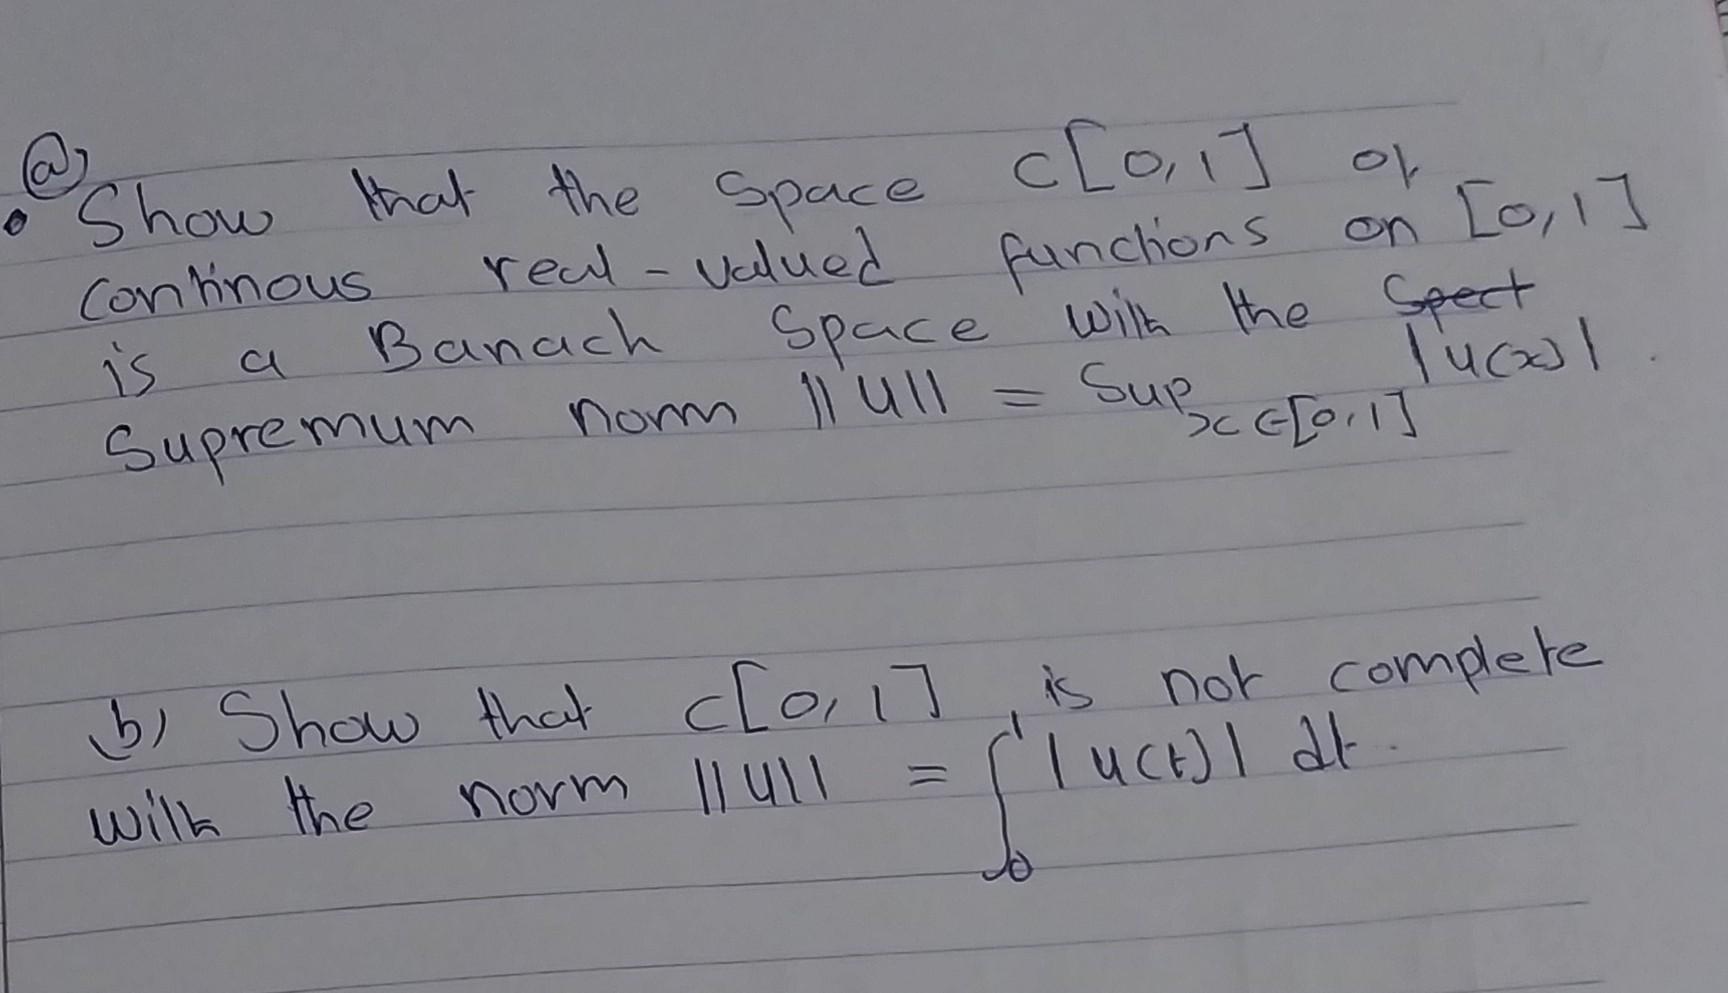 (a)
• Show that the space C[0,1] of
continous real-valued functions on [0,1]
is a Banach Space with the Spect
Supremum norm ||u|| = Sup x∈[0,1] |u(x)|.
b) Show that C[0,1], is not complete
with the norm ||u|| = ∫₀¹ |u(t)| dt.